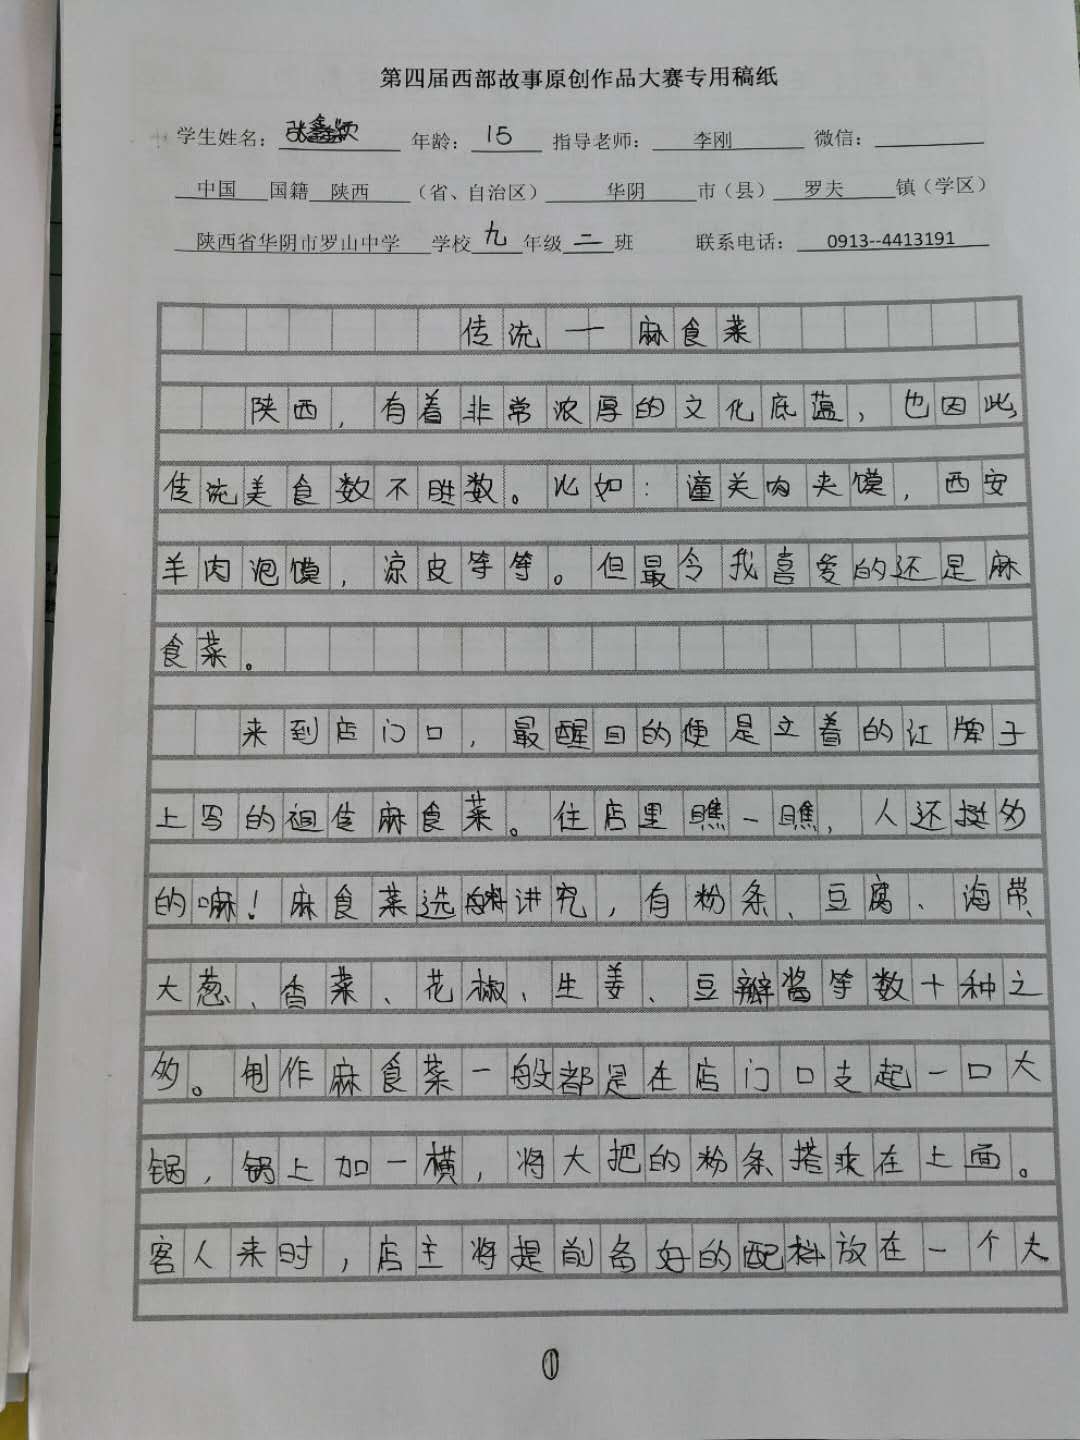 第四届西部故事原创作品大赛专用稿纸
学生姓名：张鑫颖 年龄：15 指导老师：李刚 微信：
中国 国籍 陕西 （省、自治区） 华阴 市（县） 罗夫 镇（学区）
陕西省华阴市罗山中学 学校 九 年级 二 班 联系电话：0913--4413191
传流一麻食菜
陕西，有着非常浓厚的文化底蕴，也因此，
传流美食数不胜数。比如：潼关肉夹馍，西安
羊肉泡馍，凉皮等等。但最令我喜爱的还是麻
食菜。
来到店门口，最醒目的便是立着的红牌子
上写的祖传麻食菜。往店里瞧一瞧，人还挺多
的嘛！麻食菜选料讲究，有粉条、豆腐、海带、
大葱、香菜、花椒、生姜、豆瓣酱等数十种之
多。制作麻食菜一般都是在店门口支起一口大
锅，锅上加一横，将大把的粉条搭乘在上面。
客人来时，店主将提前备好的配料放在一个大
①